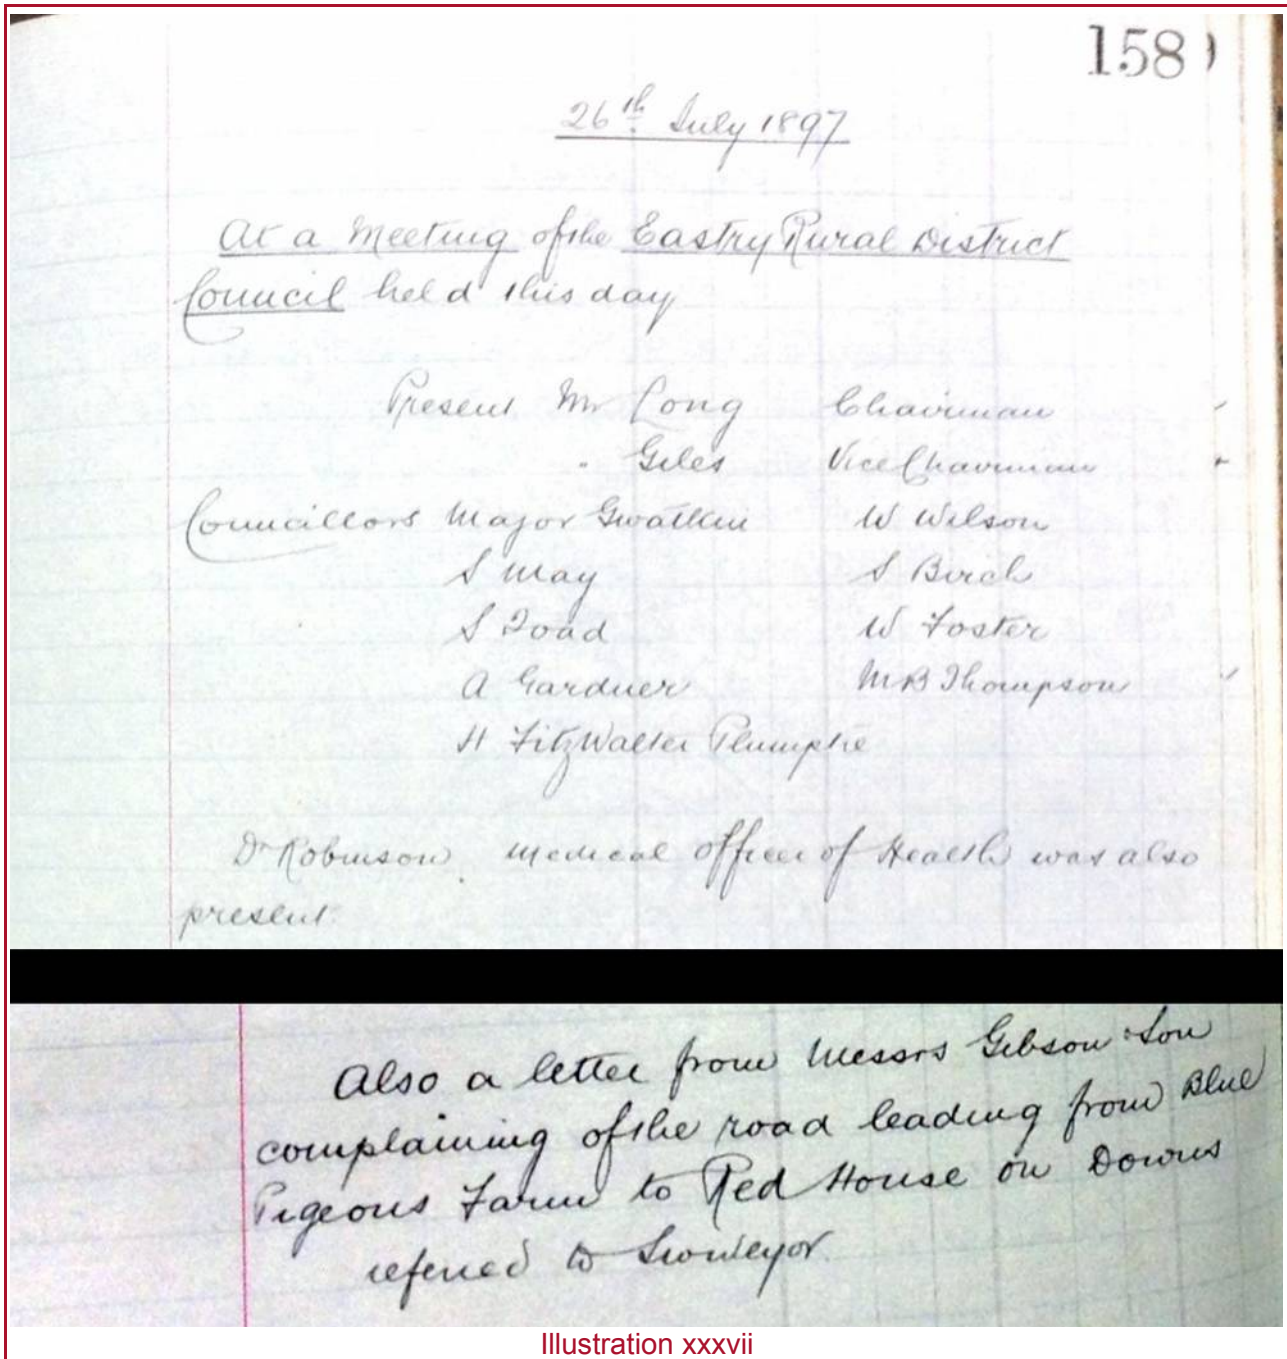 158
26th July 1897
At a Meeting of the Eastry Rural District
Council held this day
Present Mr Long Chairman
" Giles Vice Chairman
Councillors Major Gwatkin W Wilson
S May S Birch
S Toad W Foster
A Gardner M B Thompson
H FitzWalter Plumptre
Dr Robinson Medical Officer of Health was also
present.
Also a letter from Messrs Gibson & Son
complaining of the road leading from Blue
Pigeons Farm to Red House on Downs
referred to Surveyor.
Illustration xxxvii